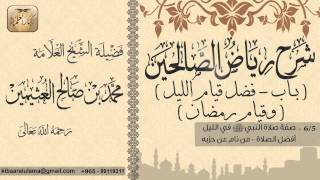 شرح رياض الصالحين
(باب - فضل قيام الليل)
(وقيام رمضان)
6/5 - صفة صلاة النبي ﷺ في الليل
أفضل الصلاة - من نام عن حزبه
فضيلة الشيخ العلامة
محمد بن صالح العثيمين
رحمه الله تعالى